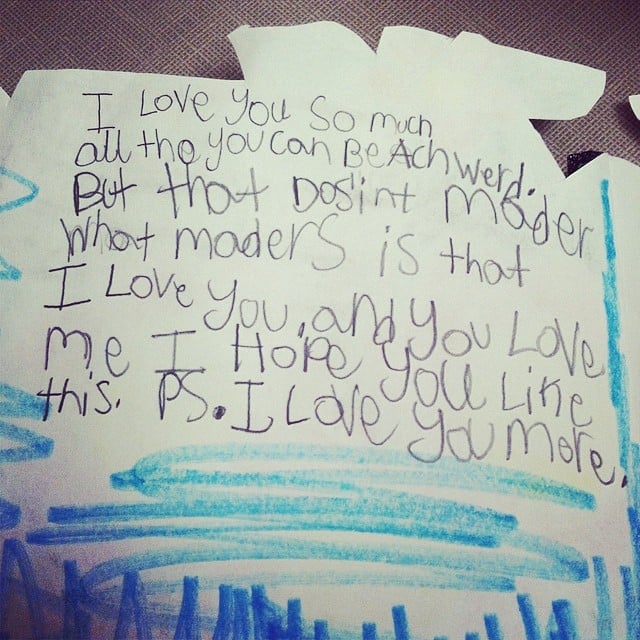 I LOVE YOU SO much
all tho you can Be Ach werd.
But that Dos'int mader
What maders is that
I Love you, and you Love
me I Hope you Like
this. PS. I Love you more.